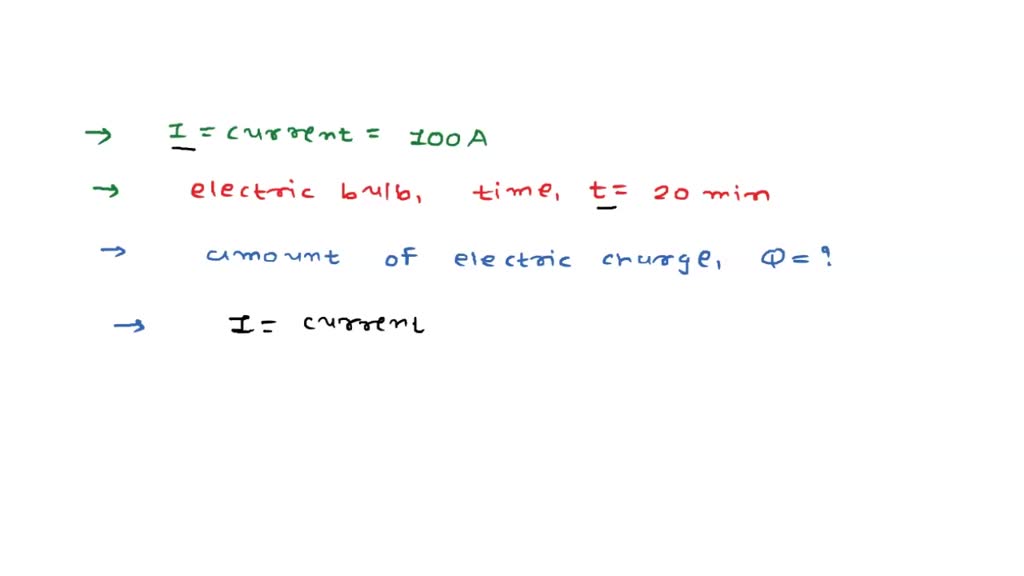 → I = current = 100A
→ electric bulb, time, t = 20 min
→ amount of electric charge, Q = ?
→ I = current